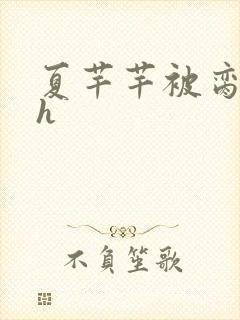 夏芊芊被离
h
不负笙歌